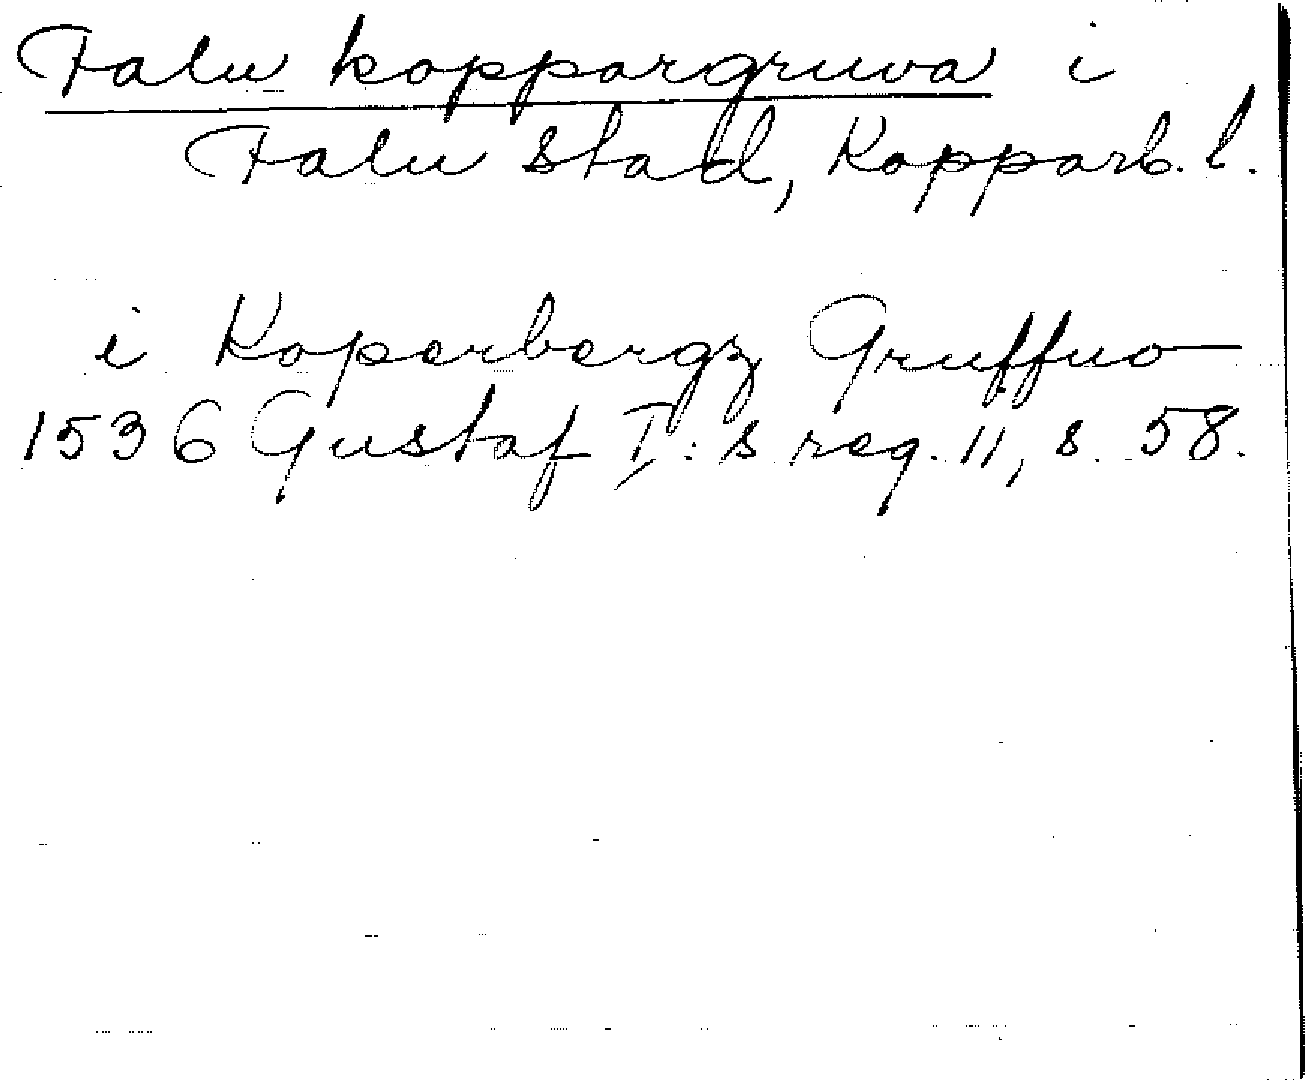 Falu koppargruva i
Falu stad, Kopparb. l.
i Koperbergz Gruffuo
1536 Gustaf I:s reg. 11, s. 58.